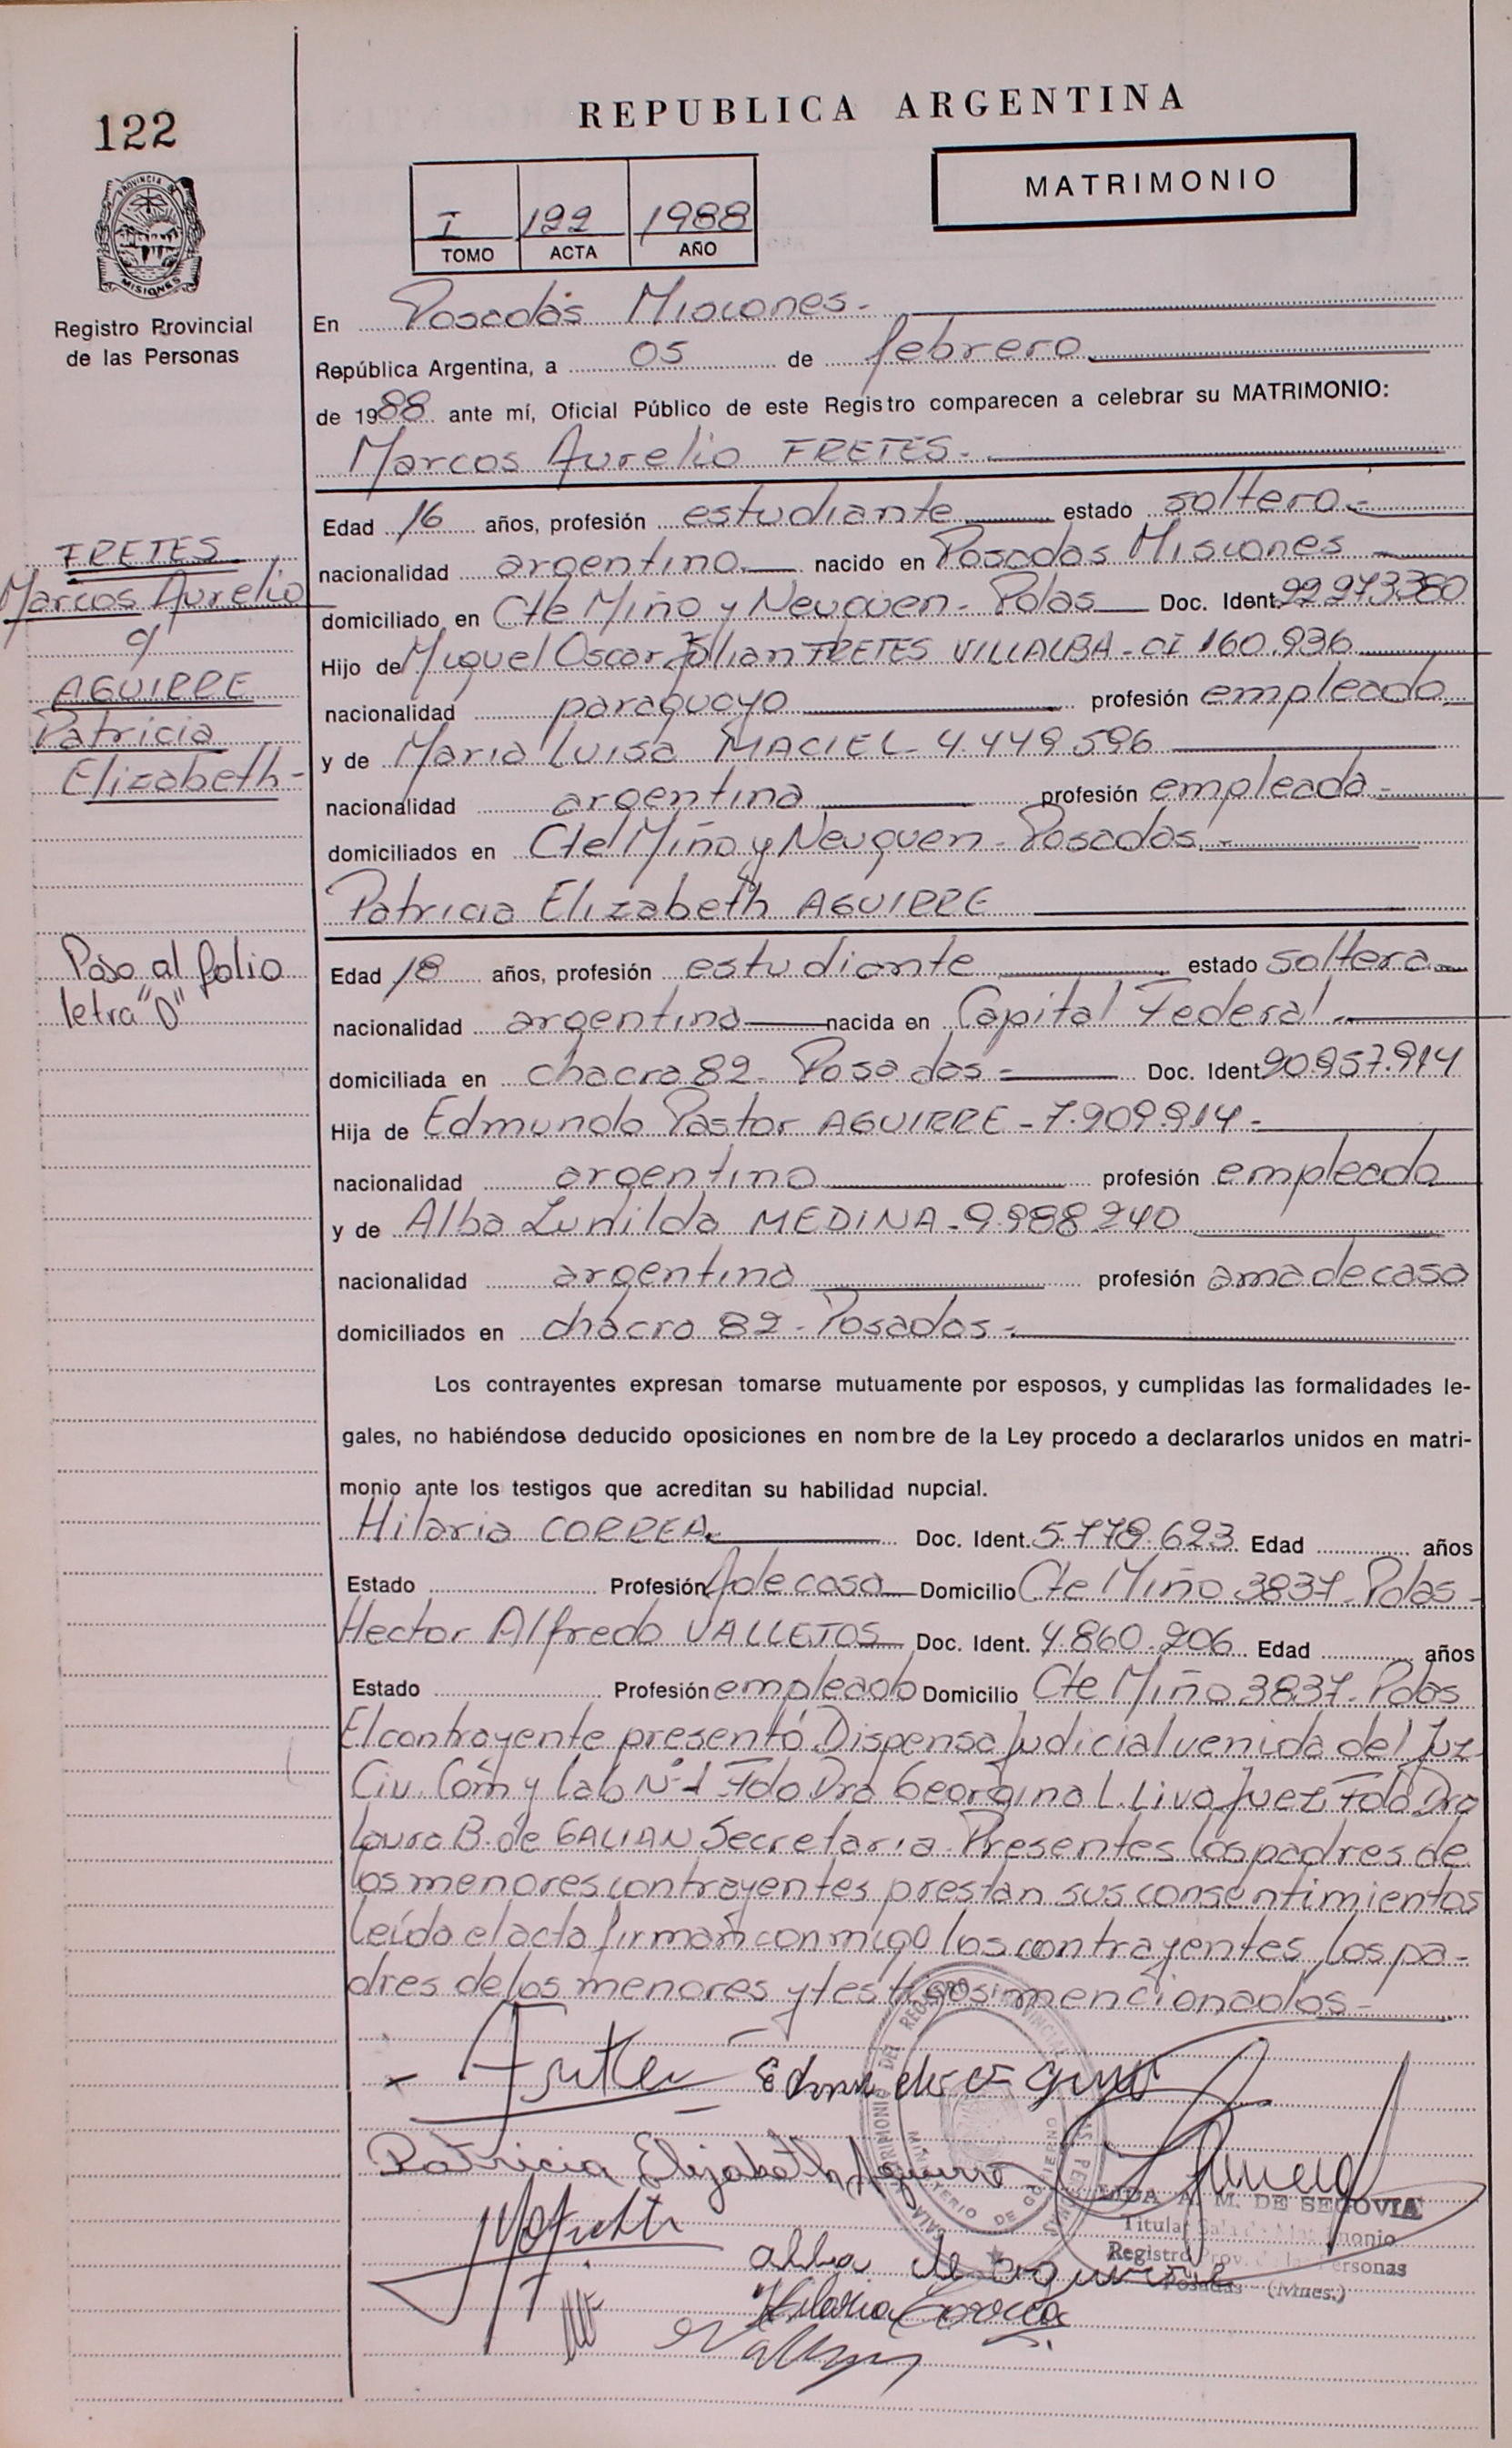 122
REPUBLICA ARGENTINA
MATRIMONIO
I 122 1988
TOMO ACTA AÑO
PROVINCIA DE
MISIONES
Registro Provincial
de las Personas
En Posadas Misiones.-
República Argentina, a 05 de febrero
de 1988 ante mí, Oficial Público de este Registro comparecen a celebrar su MATRIMONIO:
Marcos Aurelio FRETES.-
Edad 16 años, profesión estudiante estado soltero.-
FRETES
Marcos Aurelio
y
AGUIRRE
Patricia
Elizabeth-
nacionalidad argentino nacido en Posadas Misiones
domiciliado en Cte Miño y Neuquen - Pdas Doc. Ident. 22973380
Hijo de Miguel Oscar Julian FRETES VILLALBA - CI 160.936
nacionalidad paraguayo profesión empleado
y de Maria Luisa MACIEL - 4.449.596
nacionalidad argentina profesión empleada-
domiciliados en Cte Miño y Neuquen - Posadas.-
Patricia Elizabeth AGUIRRE
Paso al folio
letra "D"
Edad 18 años, profesión estudiante estado soltera
nacionalidad argentina nacida en Capital Federal
domiciliada en chacra 82 - Posadas - Doc. Ident. 20.957.914
Hija de Edmundo Pastor AGUIRRE - 7.909.914 -
nacionalidad argentino profesión empleado
y de Alba Lunilda MEDINA - 9.988240
nacionalidad argentina profesión ama de casa
domiciliados en chacra 82 - Posadas -
Los contrayentes expresan tomarse mutuamente por esposos, y cumplidas las formalidades le-
gales, no habiéndose deducido oposiciones en nombre de la Ley procedo a declararlos unidos en matri-
monio ante los testigos que acreditan su habilidad nupcial.
Hilaria CORREA. Doc. Ident. 5.778.623 Edad años
Estado Profesión A de casa Domicilio Cte Miño 3837 - Pdas -
Hector Alfredo VALLEJOS Doc. Ident. 4.860.206 Edad años
Estado Profesión empleado Domicilio Cte Miño 3837 - Pdas
El contrayente presentó Dispensa Judicial venida del Juz
Civ. Com y Lab Nº 1 Fdo Dra Georgina L. Liva Juez, Fdo Dra
Laura B. de GALIAN Secretaria. Presentes los padres de
los menores contrayentes prestan sus consentimientos
leída el acta firman conmigo los contrayentes, los pa-
dres de los menores y testigos mencionados -
Patricia Elizabeth Aguirre
LIDA A. M. DE SEGOVIA
Titular Sala de Matrimonio
Registro Prov. de las Personas
Posadas (Mnes.)
alba de aguirre
Hilaria Correa